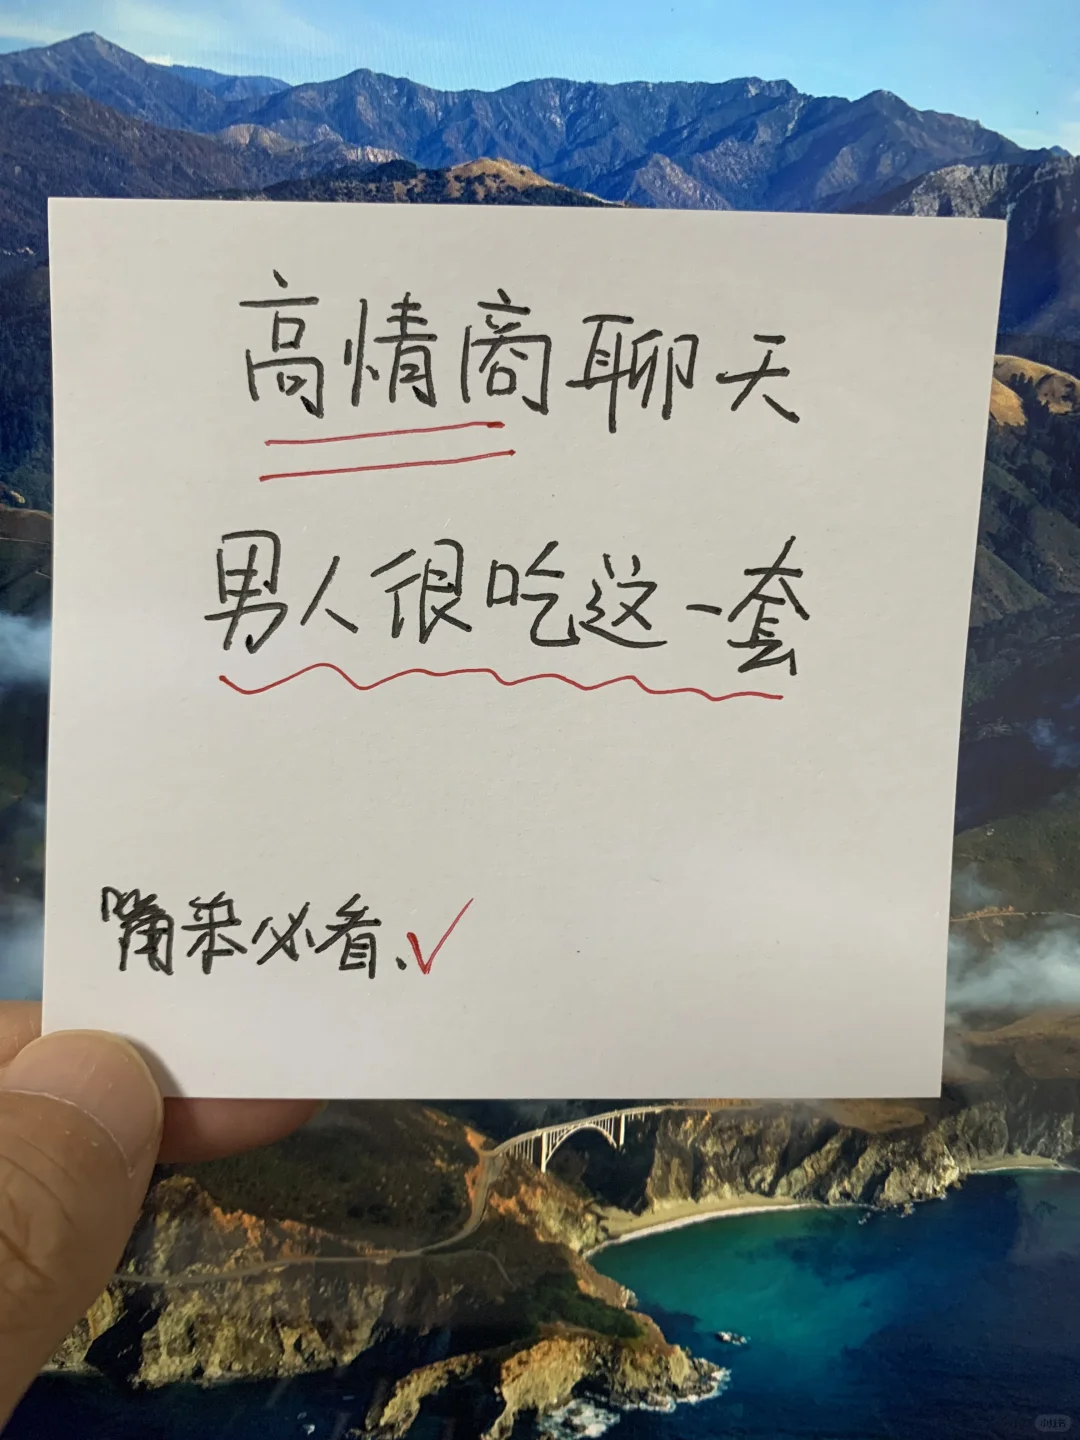 高情商聊天
男人很吃这一套
嘴笨必看.✓
小红书